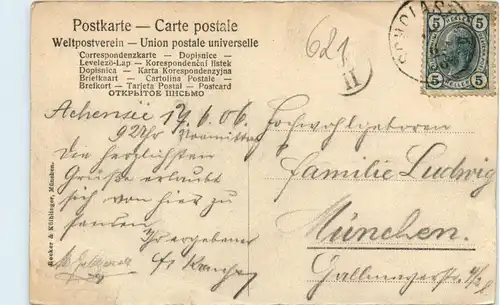 Postkarte — Carte postale
Weltpostverein — Union postale universelle
Correspondenzkarte — Dopisnice —
Levelező-Lap — Korespondenční listek
Dopisnica — Karta Korespondencyjna
Briefkaart — Cartolina Postale —
Brefkort — Tarjeta Postal — Postcard
ОТКРЫТОЕ ПІСЬМО
621
II
SCHOLAS
5 5
5 HELLER 5
Achensee 17.6.06.
9 Uhr Vormittag
Die herzlichsten
Grüße erlaubt
sich von hier zu
senden
Ihr ergebener
Hochwohlgeboren
Familie Ludwig
München.
Becker & Kölblinger, München.